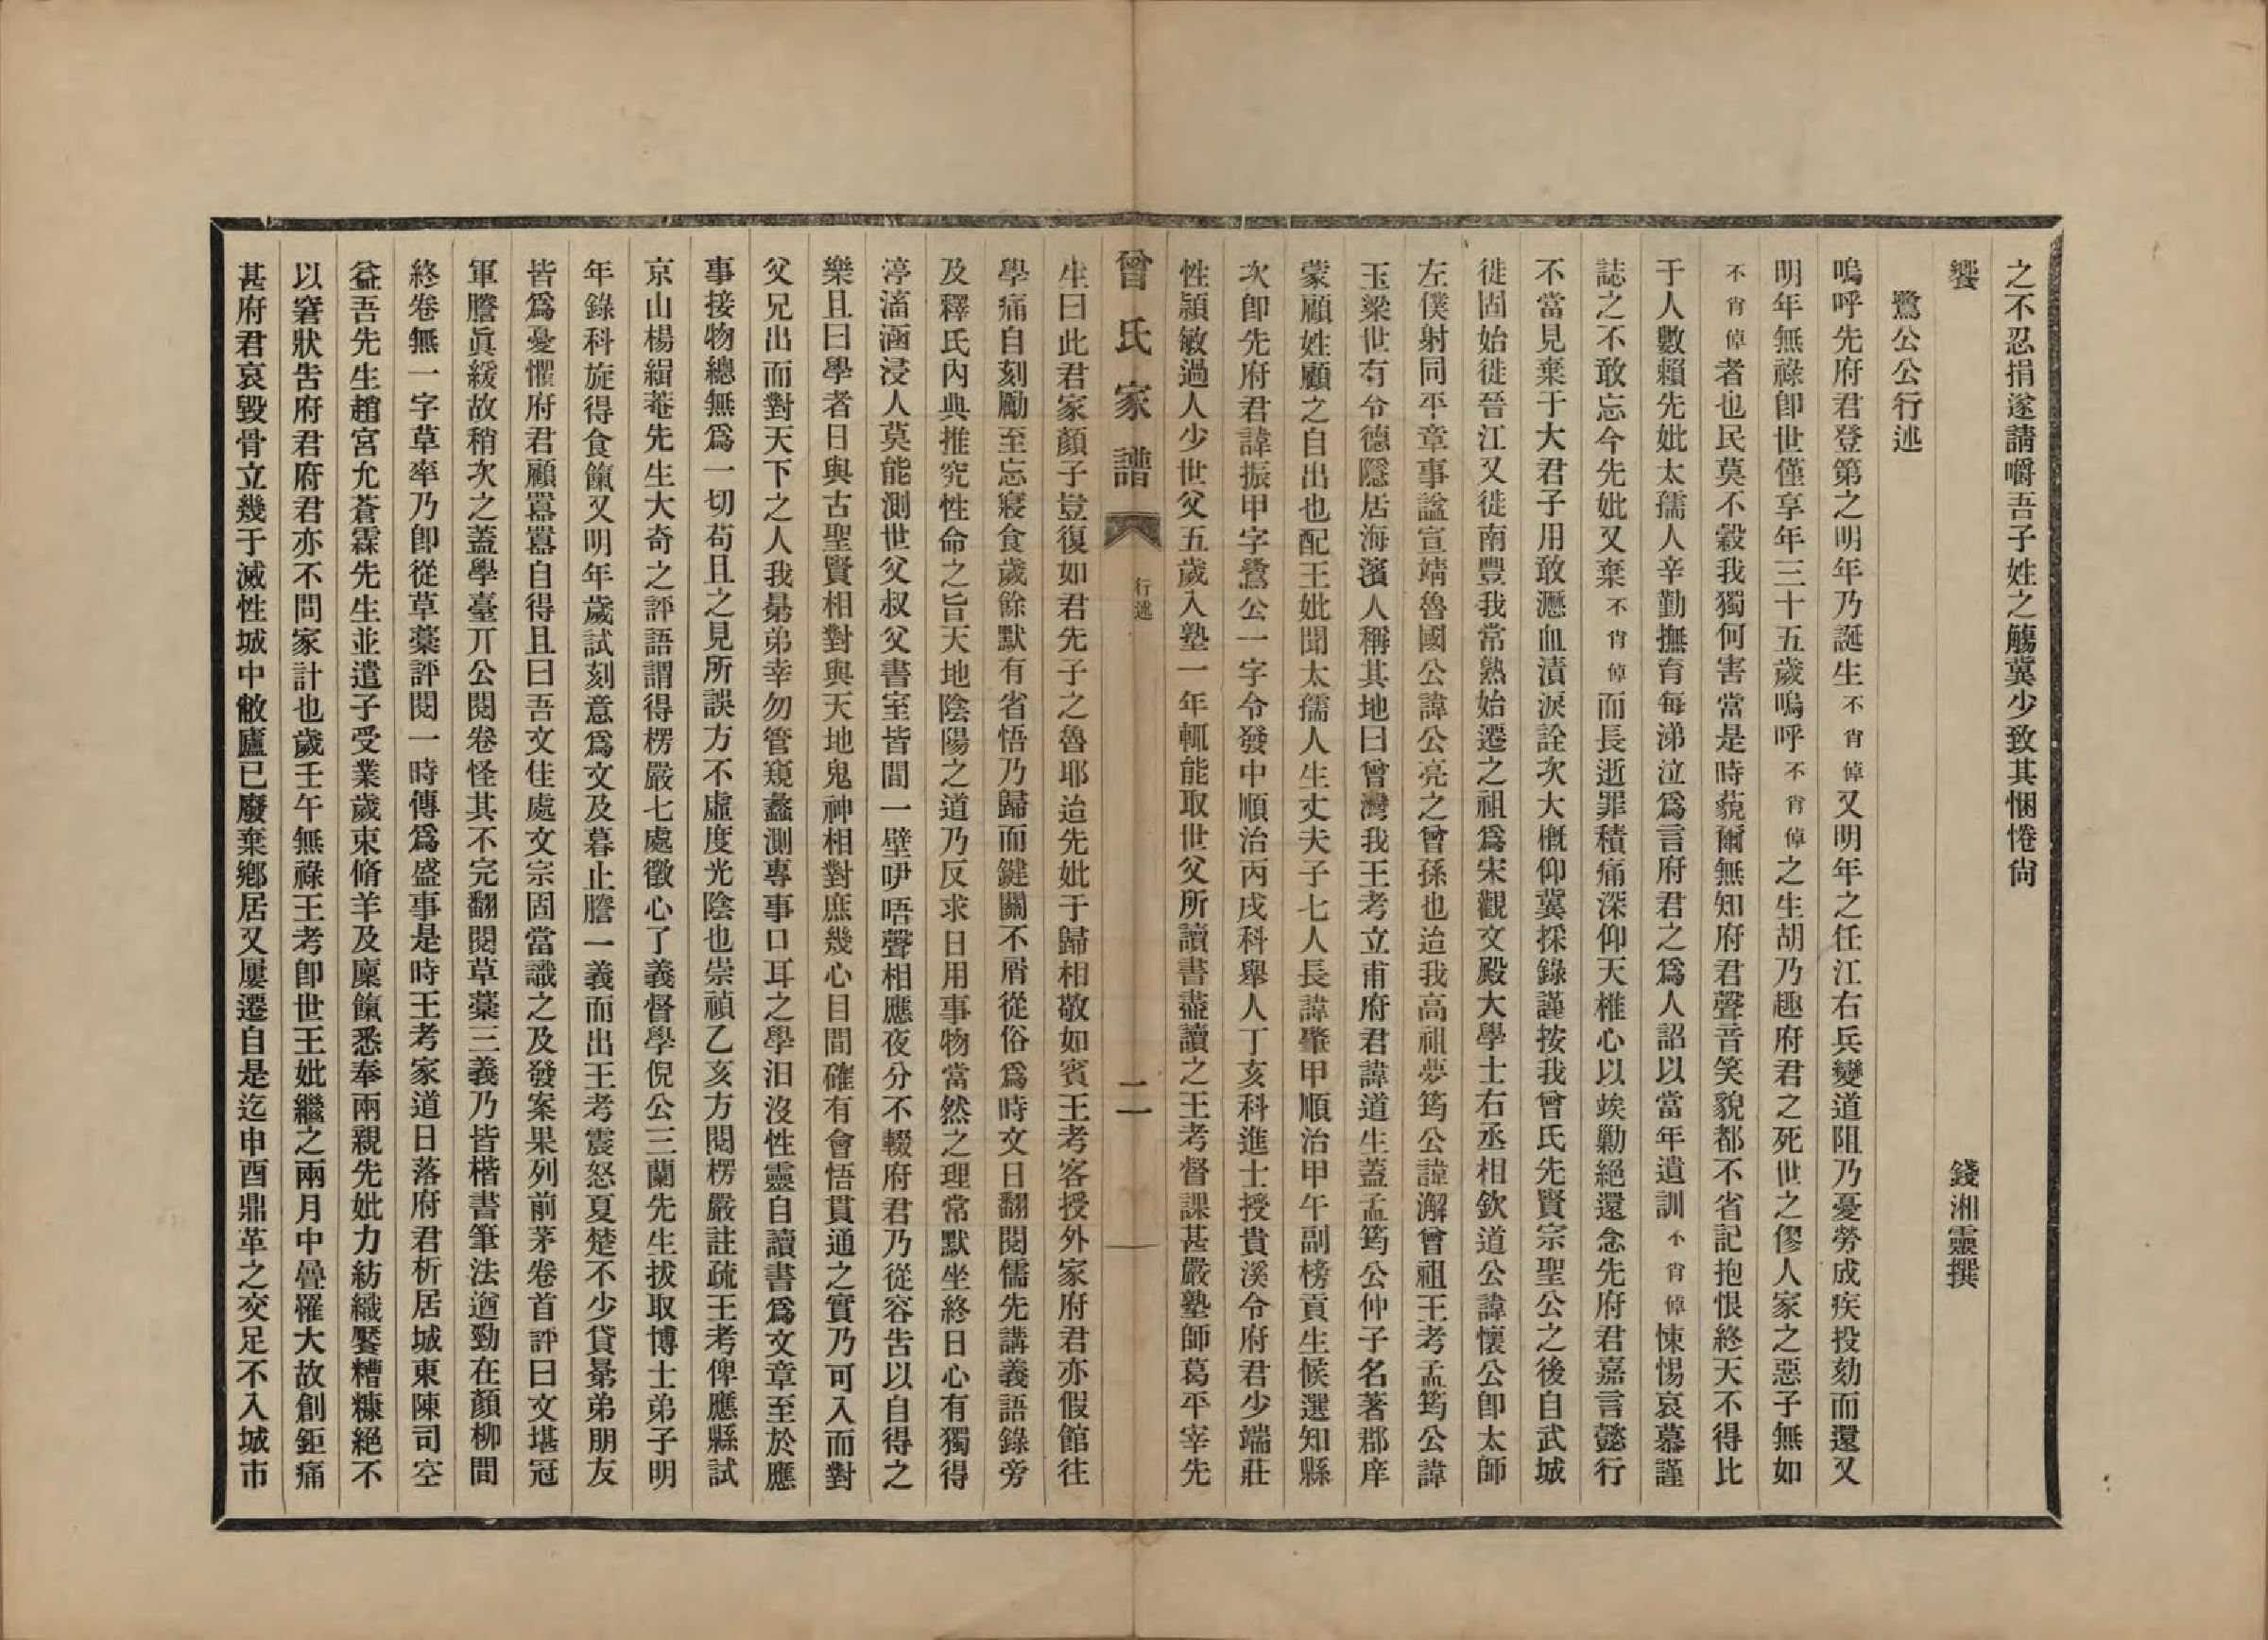 之不忍捐遂請嚼吾子姓之觴冀少致其悃惓尙
饗　錢湘靈撰
鷺公公行述
嗚呼先府君登第之明年乃誕生不肖倬又明年之任江右兵變道阻乃憂勞成疾投劾而還又
明年無祿卽世僅享年三十五歲嗚呼不肖倬之生胡乃趣府君之死世之僇人家之惡子無如
不肖倬者也民莫不穀我獨何害當是時藐爾無知府君聲音笑貌都不省記抱恨終天不得比
于人數賴先妣太孺人辛勤撫育每涕泣爲言府君之爲人詔以當年遺訓不肖倬悚惕哀慕謹
誌之不敢忘今先妣又棄不肖倬而長逝罪積痛深仰天椎心以竢勦絕還念先府君嘉言懿行
不當見棄于大君子用敢瀝血漬淚詮次大槪仰冀採錄謹按我曾氏先賢宗聖公之後自武城
徙固始徙晉江又徙南豐我常熟始遷之祖爲宋觀文殿大學士右丞相欽道公諱懷公卽太師
左僕射同平章事諡宣靖魯國公諱公亮之曾孫也迨我高祖夢筠公諱瀚曾祖王考孟筠公諱
玉梁世有令德隱居海濱人稱其地曰曾灣我王考立甫府君諱道生蓋孟筠公仲子名著郡庠
蒙顧姓顧之自出也配王妣聞太孺人生丈夫子七人長諱肇甲順治甲午副榜貢生候選知縣
次卽先府君諱振甲字鷺公一字令發中順治丙戌科舉人丁亥科進士授貴溪令府君少端莊
性穎敏過人少世父五歲入塾一年輒能取世父所讀書盡讀之王考督課甚嚴塾師葛平宰先
曾氏家譜　行述　二一
生曰此君家顏子豈復如君先子之魯耶迨先妣于歸相敬如賓王考客授外家府君亦假館往
學痛自刻勵至忘寢食歲餘默有省悟乃歸而鍵關不屑從俗爲時文日翻閱儒先講義語錄旁
及釋氏內典推究性命之旨天地陰陽之道乃反求日用事物當然之理常默坐終日心有獨得
渟滀涵浸人莫能測世父叔父書室皆間一壁咿唔聲相應夜分不輟府君乃從容吿以自得之
樂且曰學者日與古聖賢相對與天地鬼神相對庶幾心目間確有會悟貫通之實乃可入而對
父兄出而對天下之人我㬥弟幸勿管窺蠡測專事口耳之學汨沒性靈自讀書爲文章至於應
事接物總無爲一切苟且之見所誤方不虛度光陰也崇禎乙亥方閱楞嚴註疏王考俾應縣試
京山楊緝菴先生大奇之評語謂得楞嚴七處徵心了義督學倪公三蘭先生拔取博士弟子明
年錄科旋得食餼又明年歲試刻意爲文及暮止謄一義而出王考震怒夏楚不少貸㬥弟朋友
皆爲憂懼府君顧囂囂自得且曰吾文佳處文宗固當識之及發案果列前茅卷首評曰文堪冠
軍謄眞緩故稍次之蓋學臺丌公閱卷怪其不完翻閱草藁三義乃皆楷書筆法遒勁在顏柳間
終卷無一字草率乃卽從草藁評閱一時傳爲盛事是時王考家道日落府君析居城東陳司空
益吾先生趙宮允蒼霖先生並遣子受業歲束脩羊及廩餼悉奉兩親先妣力紡織饜糟糠絕不
以窘狀吿府君府君亦不問家計也歲壬午無祿王考卽世王妣繼之兩月中疊罹大故創鉅痛
甚府君哀毀骨立幾于滅性城中敝廬已廢棄鄕居又屢遷自是迄申酉鼎革之交足不入城市